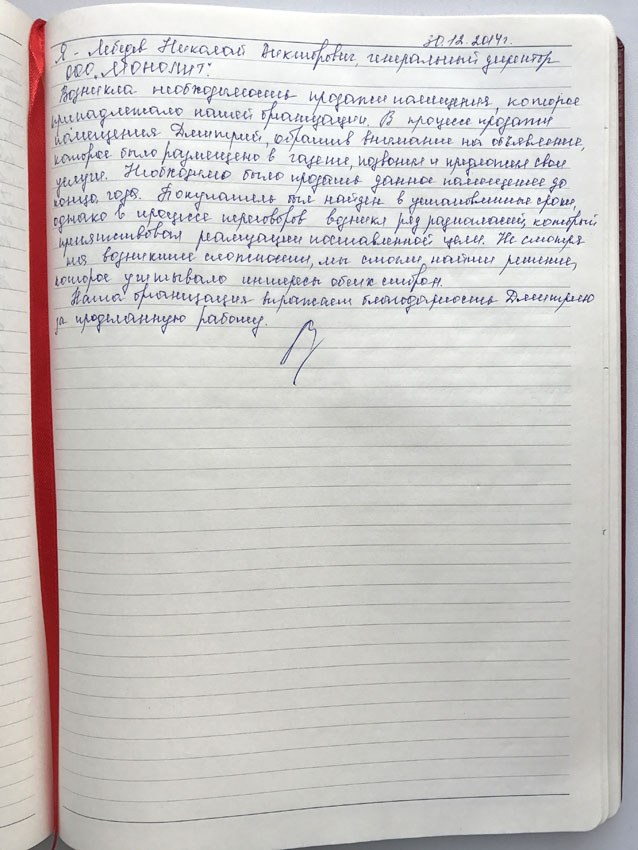 30.12.2014г.
Я - Лебедев Николай Викторович, генеральный директор
ООО "Монолит":
Возникла необходимость продажи помещения, которое
принадлежало нашей организации. В процессе продажи
помещения Дмитрий, обратив внимание на объявление,
которое было размещено в газете, позвонил и предложил свои
услуги. Необходимо было продать данное помещение до
конца года. Покупатель был найден в установленные сроки,
однако в процессе переговоров возник ряд разногласий, который
препятствовал реализации поставленной цели. Не смотря
на возникшие сложности, мы смогли найти решение,
которое учитывало интересы обеих сторон.
Наша организация выражает благодарность Дмитрию
за проделанную работу.